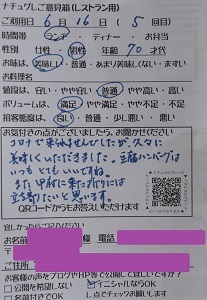 ナチュグレご意見箱(レストラン用)
ご利用日 6月 16日( 5 回目)
時間帯 ランチ・ディナー・お弁当
性別 女性 男性 年齢 70才代
味は 美味しい・普通・あまり美味しくない・まずい
お料理名
値段は、安い・やや安い・普通・やや高い・高い
ボリュームは、満足・やや満足・やや不足・不足
接客態度は、良い・普通・少し悪い・悪い
お気付きの点がございましたら、お聞かせください
コロナで来れませんでしたが、久々に
美味しくいただきました。豆腐ハンバーグは
いつもとてもいいですね。
また甲府に来た折りには
立ち寄りたいと思います。
QRコードからもお答えいただけます
宜しかったらご記入ください
お名前 様 電話
〒
ご住所
お客様の声をブログやHP等で公開して宜しいですか?
公開を希望しない イニシャルなら○K
お名前付きでOK 匿名でチェックお願いします